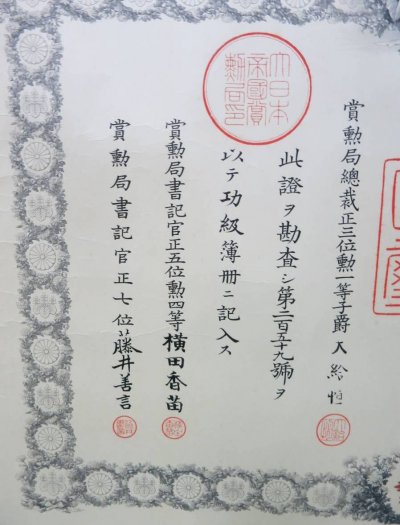 賞勲局總裁正三位勲一等子爵大給恒
大日本
帝國賞
勲局印
此證ヲ勘査シ第二百五十九號ヲ
以テ功級簿册ニ記入ス
賞勲局書記官正五位勲四等横田香苗
賞勲局書記官正七位藤井善言